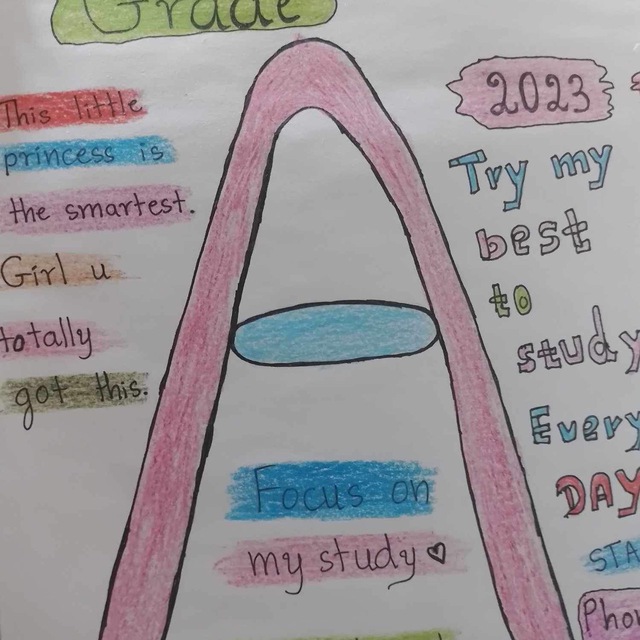 Grade
This little
princess is
the smartest.
Girl u
totally
got this.
A
Focus on
my study
2023
Try my
best
to
study
Every
DAY